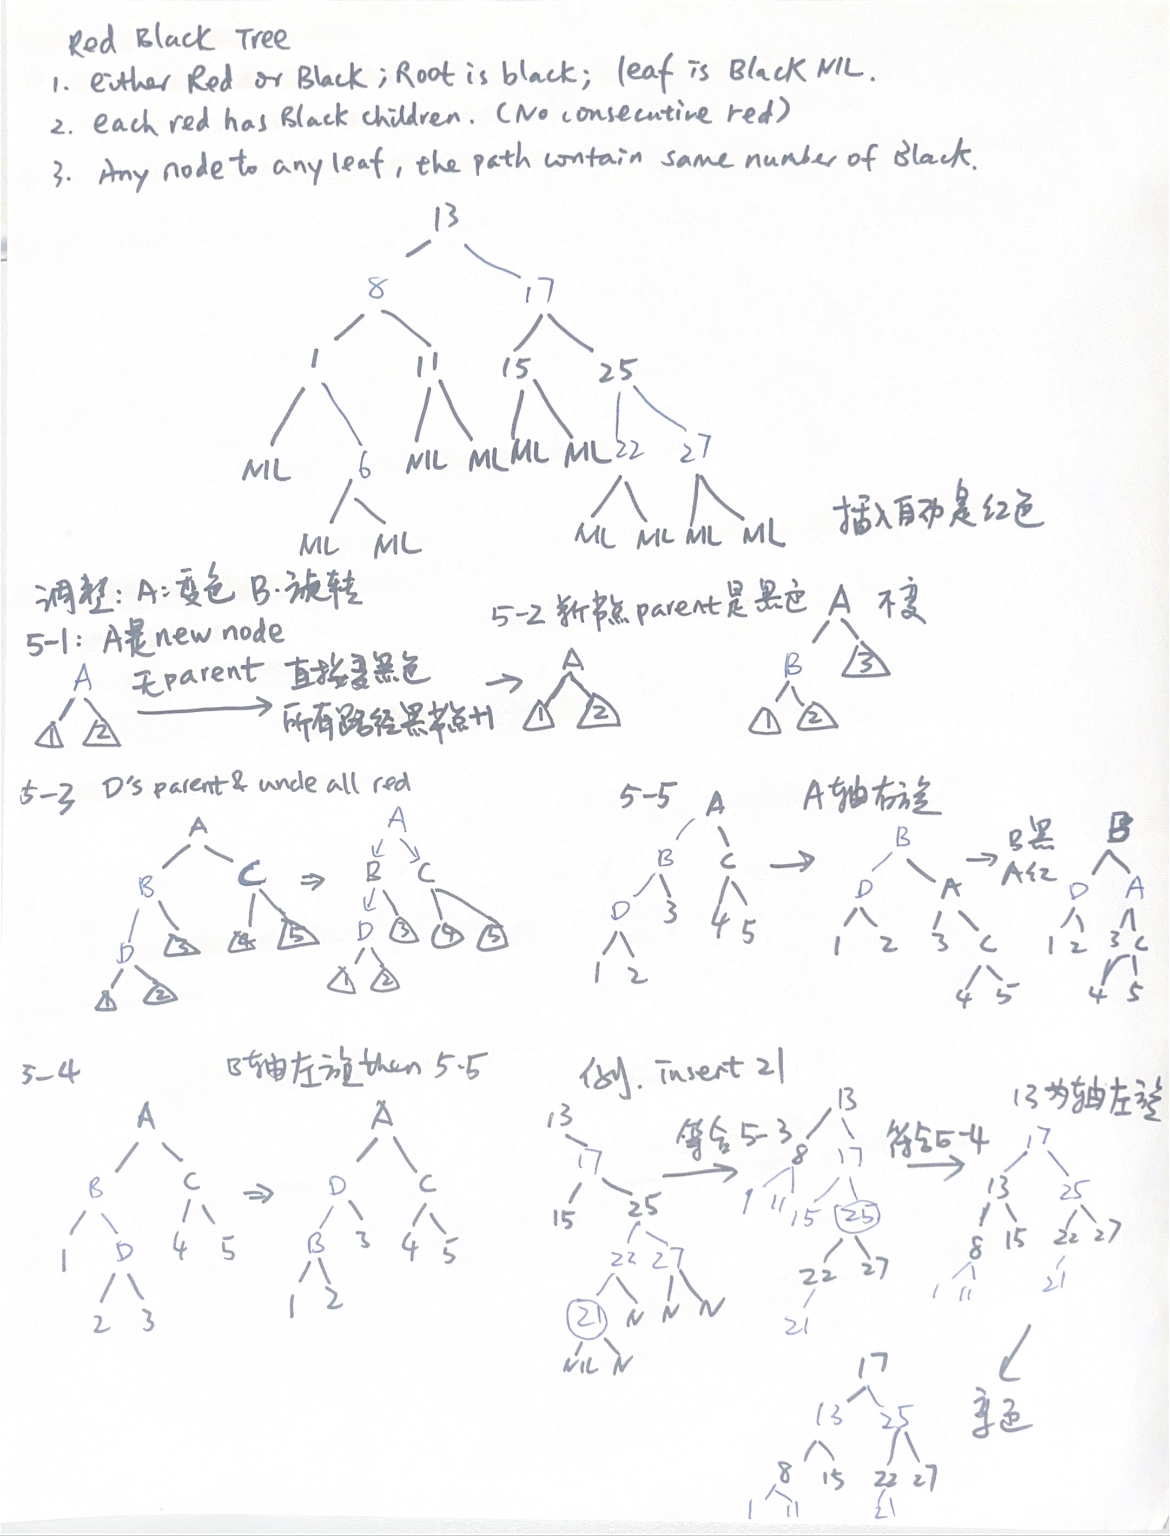 Red Black Tree
1. either Red or Black; Root is black; leaf is Black NIL.
2. each red has Black children. (No consecutive red)
3. Any node to any leaf, the path contain same number of Black.
13
8 17
1 11 15 25
NIL 6 NIL NIL NIL NIL 22 27
NIL NIL NIL NIL NIL NIL
插入自动是红色
调整: A:变色 B.旋转
5-1: A是new node
A 无parent 直接变黑色 A
1 2 所有路径黑节点+1 1 2
5-2 新节点parent是黑色 不变
A
B 3
1 2
5-3 D's parent & uncle all red
A A
B C ⇒ B C
D 3 4 5 D 3 4 5
1 2 1 2
5-5 A轴右旋
A B B黑 B
B C D A A红 D A
D 3 4 5 1 2 3 C 1 2 3 C
1 2 4 5 4 5
5-4 B轴左旋 then 5.5
A A
B C ⇒ D C
1 D 4 5 B 3 4 5
2 3 1 2
例. insert 21
13
17
15 25
22 27
21 N N N
NIL N
符合5-3
13
8 17
1 11 15 25
22 27
21
符合5-4
13为轴左旋
17
13 25
8 15 22 27
1 11 21
变色
17
13 25
8 15 22 27
1 11 21